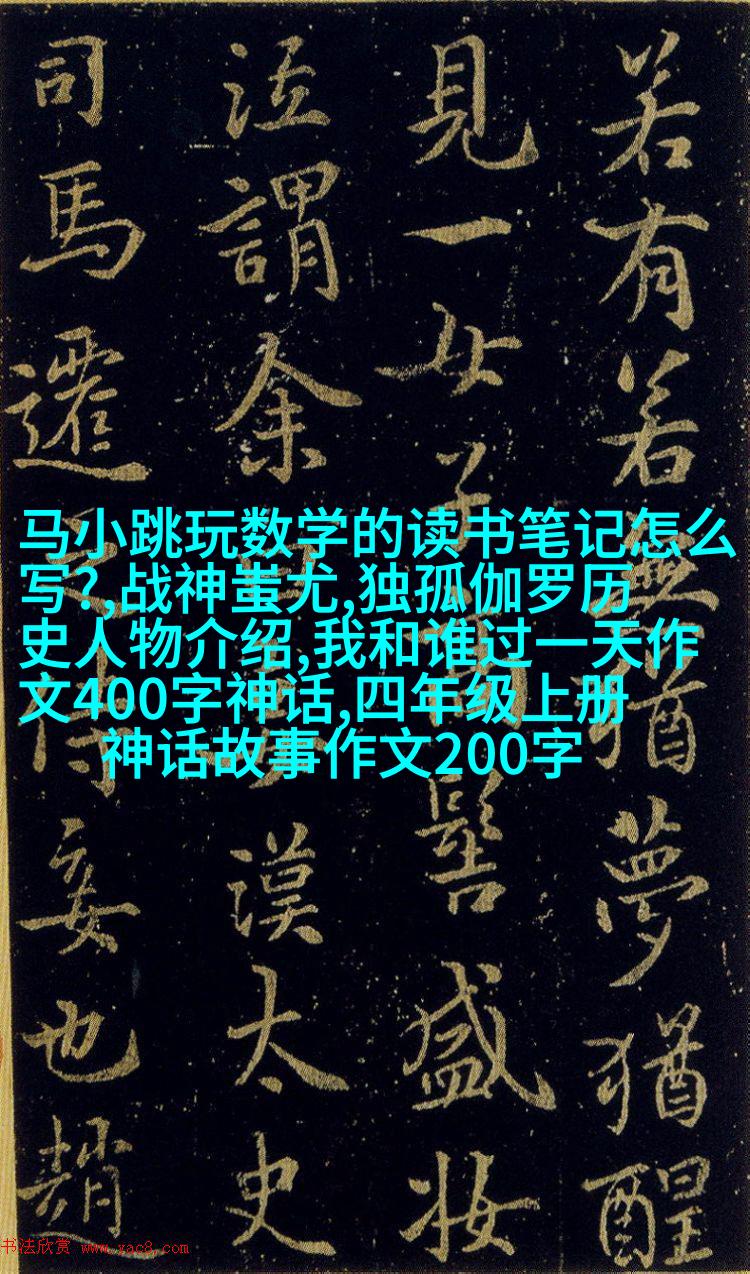 若有若無猶夢猶醒
見一女子髻盛妝
泣謂余漢太史
司馬遷侍妾也趙
马小跳玩数学的读书笔记怎么
写?,战神蚩尤,独孤伽罗历
史人物介绍,我和谁过一天作
文400字神话,四年级上册
神话故事作文200字
书法欣赏 www.yac8.com